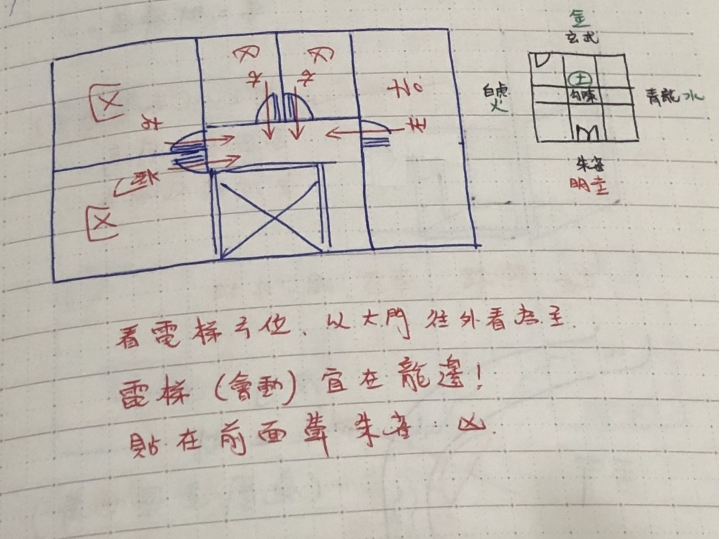 金
玄武
白虎
火
土
勾陳
青龍 水
朱雀
明堂
No
看電梯方位、以大門往外看為主.
電梯(會動)宜在龍邊!
貼在前面葬朱雀 凶.